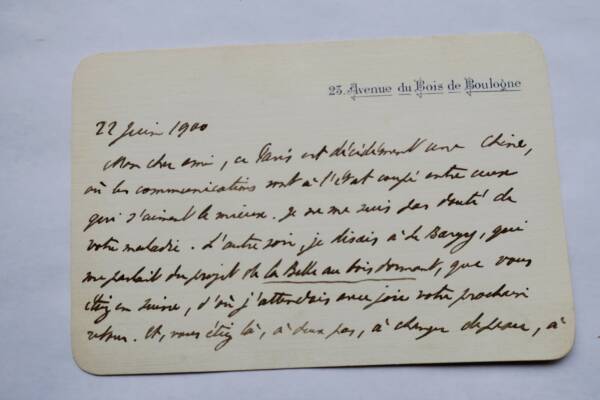 23, Avenue du Bois de Boulogne
22 Juin 1900
Mon cher ami, ce Paris est décidément une Chine,
où les communications sont à l'état coupé entre ceux
qui s'aiment le mieux. Je ne me suis pas douté de
votre maladie. L'autre soir, je disais à Le Bargy, qui
me parlait du projet de la Belle au bois dormant, que vous
étiez en Suisse, d'où j'attendais avec joie votre prochain
retour. Et, vous étiez là, à deux pas, à changer de peau, à